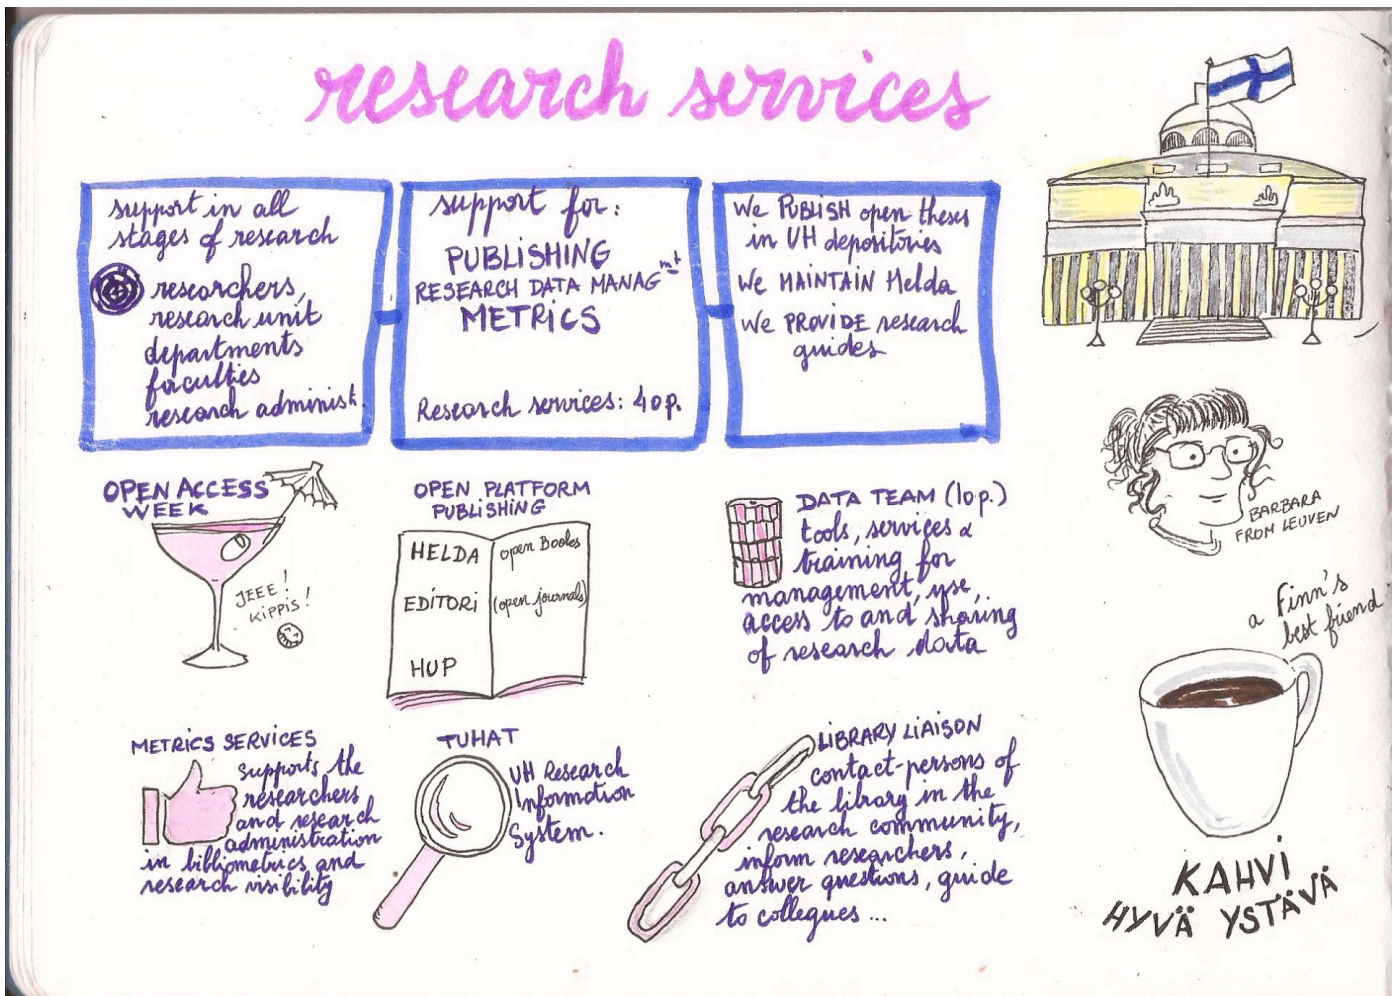 research services
support in all
stages of research
researchers,
research unit
departments
faculties
research administ.
support for:
PUBLISHING
RESEARCH DATA MANAG mt
METRICS
Research services: 40 p.
We PUBLISH open theses
in UH depositories
We MAINTAIN Helda
We PROVIDE research
guides
OPEN ACCESS
WEEK
JEEE!
KIPPIS!
OPEN PLATFORM
PUBLISHING
HELDA
EDITORI
HUP
open Books
(open journals)
DATA TEAM (10 p.)
tools, services &
training for
management, use,
access to and sharing
of research data
BARBARA
FROM LEUVEN
a Finn's
best friend
METRICS SERVICES
supports the
researchers
and research
administration
in bibliometrics and
research visibility
TUHAT
UH Research
Information
System.
LIBRARY LIAISON
contact-persons of
the library in the
research community,
inform researchers,
answer questions, guide
to collegues ...
KAHVI
HYVÄ YSTÄVÄ